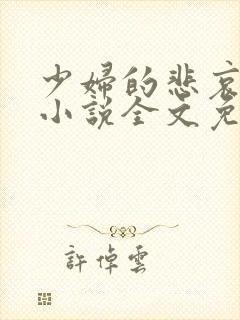 少婦的悲哀
小說全文免
許倬雲